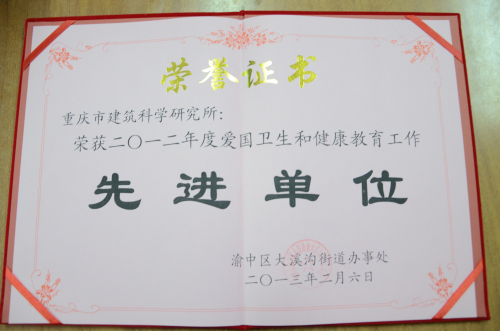 荣誉证书
重庆市建筑科学研究所：
荣获二〇一二年度爱国卫生和健康教育工作
先进单位
渝中区大溪沟街道办事处
二〇一三年二月六日